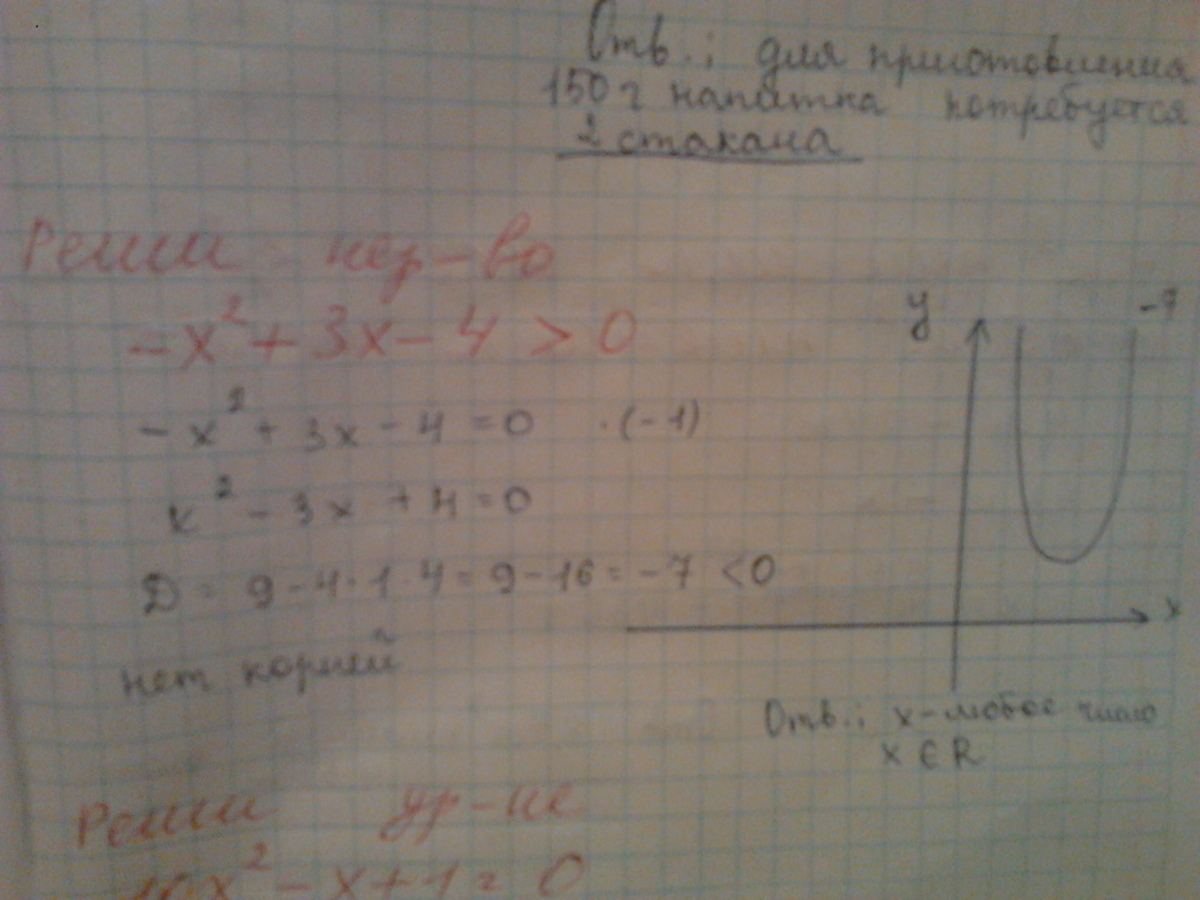 Отв.: для приготовления
150 г напитка потребуется
2 стакана
Реши нер-во
-x² + 3x - 4 > 0
-x² + 3x - 4 = 0 ·(-1)
x² - 3x + 4 = 0
D = 9 - 4·1·4 = 9 - 16 = -7 < 0
нет корней
y
x
Отв.: x - любое число
x ∈ R
Реши ур-не
10x² - x + 1 = 0